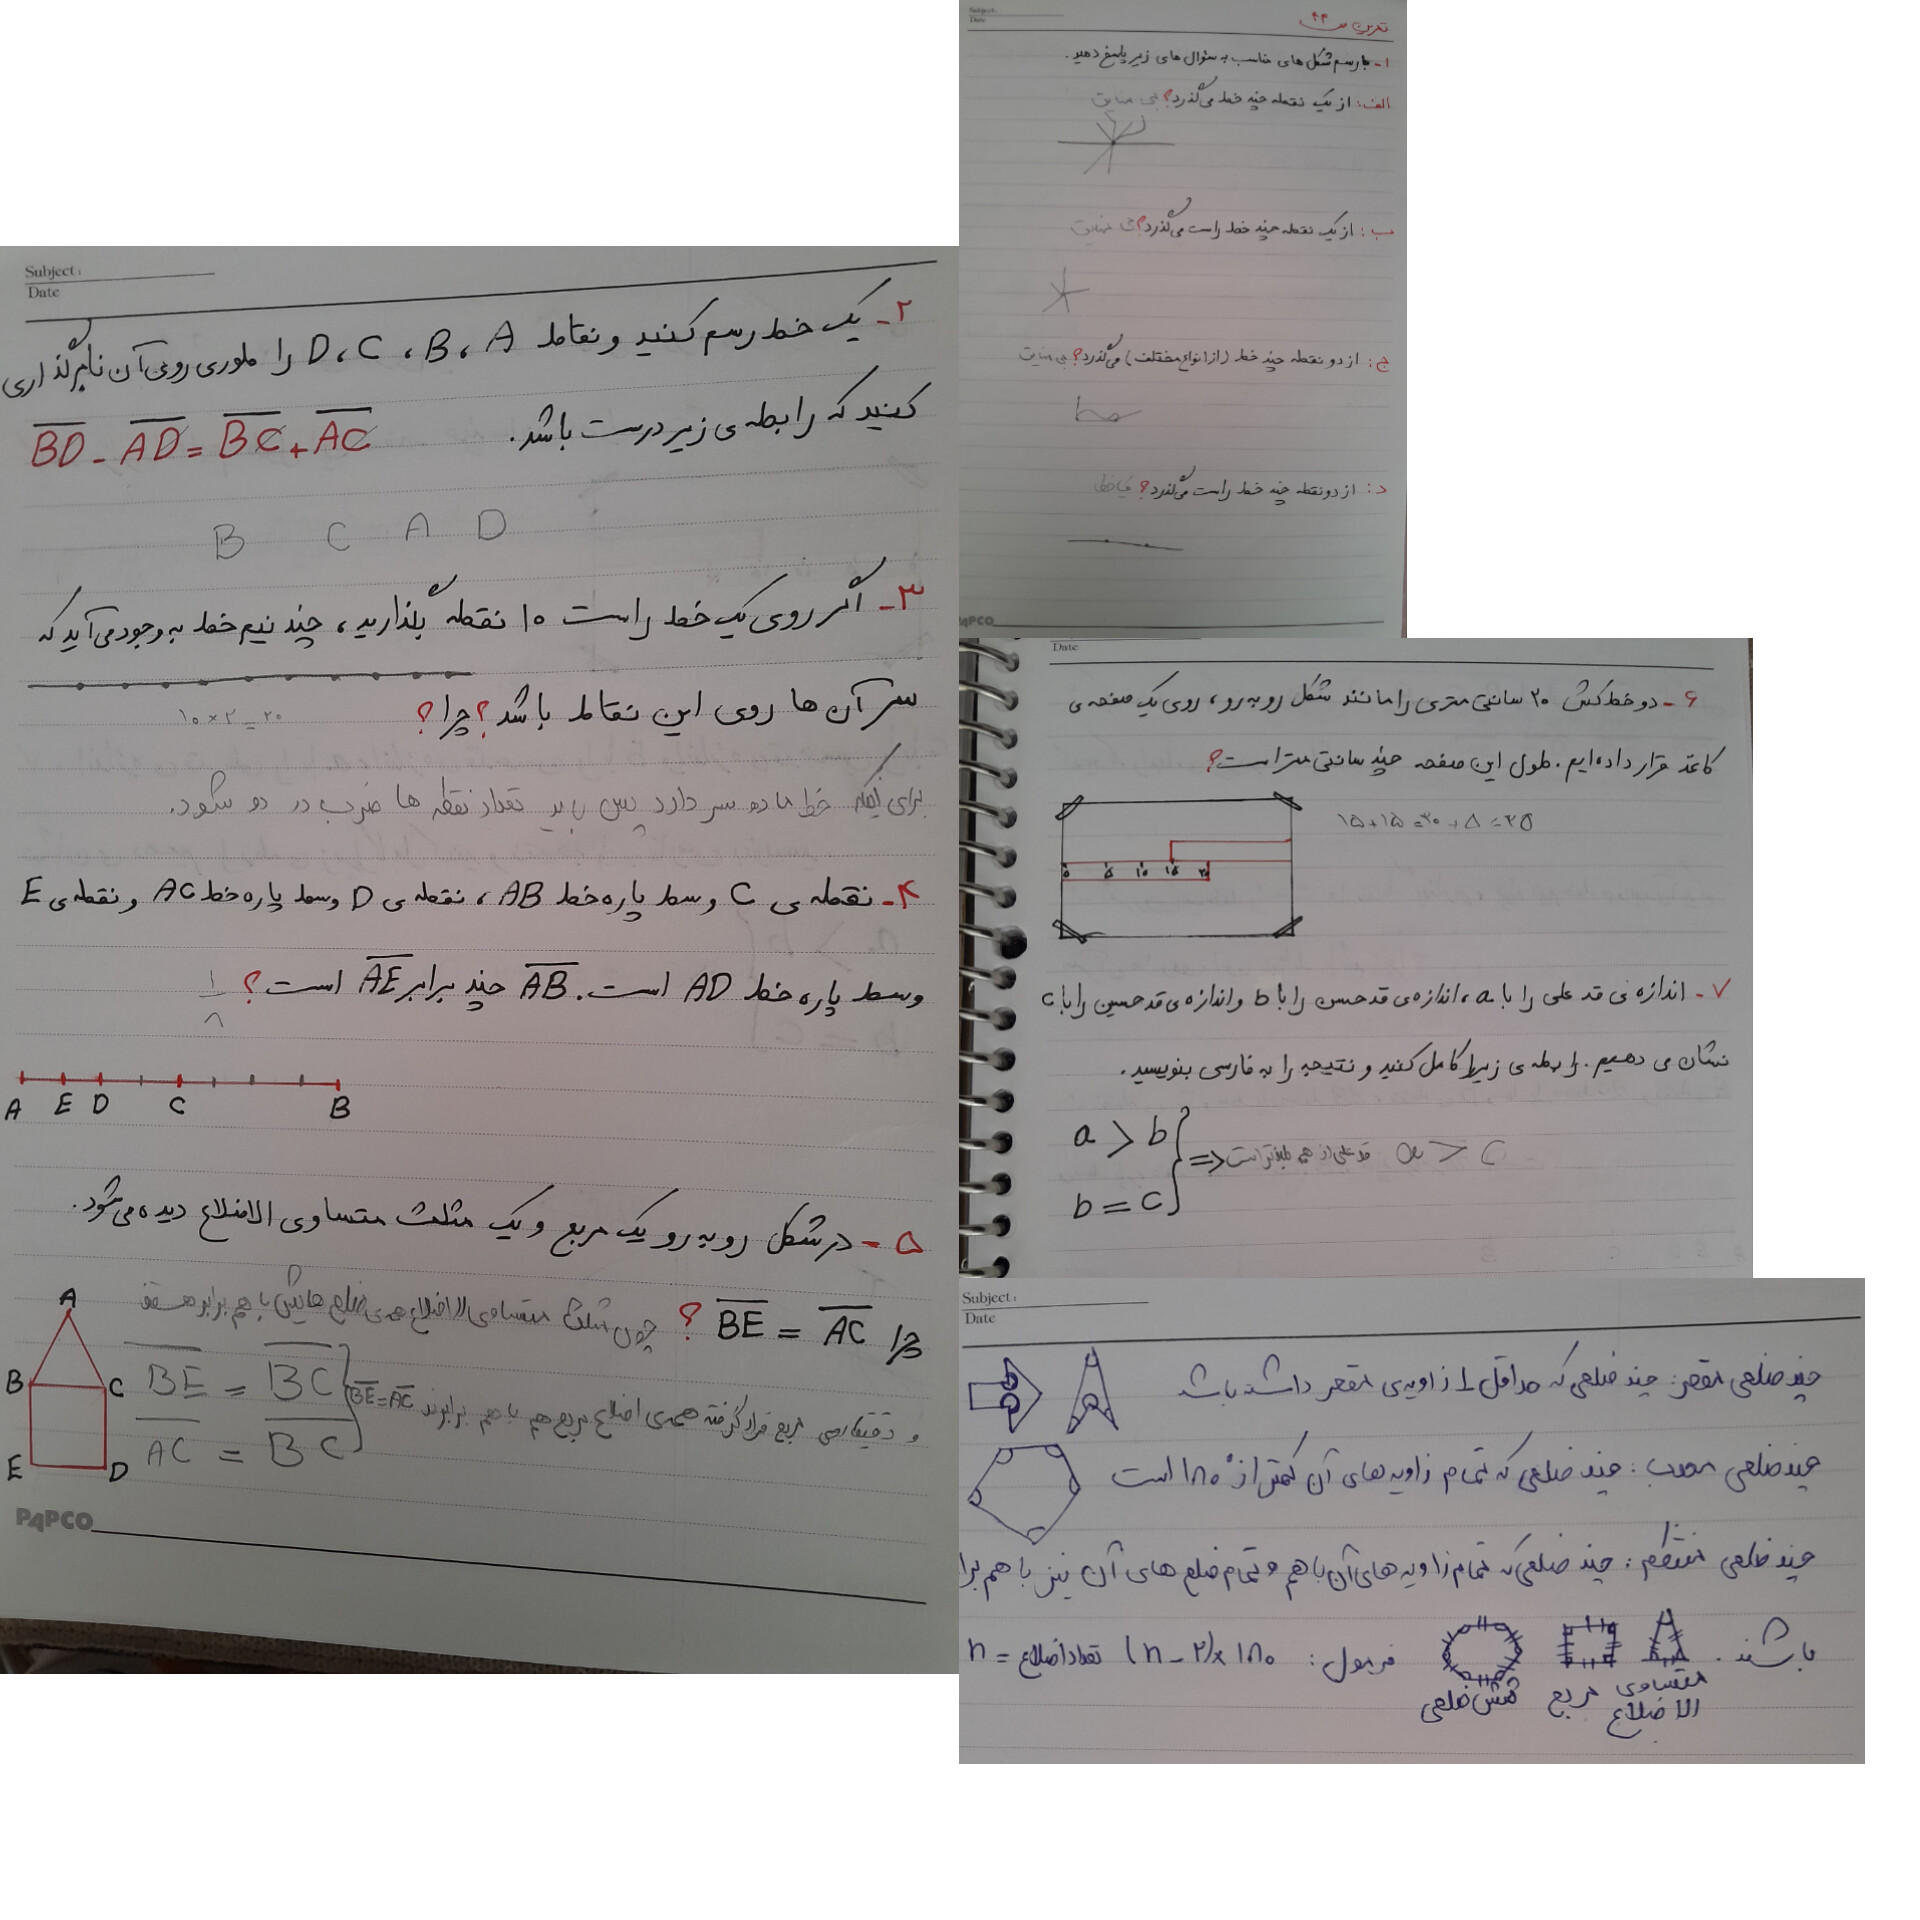 Subject:
Date
تمرین ص ۴۴
۱- با رسم شکل های مناسب به سؤال های زیر پاسخ دهید.
الف: از یک نقطه چند خط می گذرد؟ بی نهایت
ب: از یک نقطه چند خط راست می گذرد؟ بی نهایت
ج: از دو نقطه چند خط (از انواع مختلف) می گذرد؟ بی نهایت
د: از دو نقطه چند خط راست می گذرد؟ یک خط
PAPCO
Subject:
Date
۲- یک خط رسم کنید و نقاط A، B، C، D را طوری روی آن نام گذاری
کنید که رابطه ی زیر درست باشد. BD - AD = BC + AC
B C A D
۳- اگر روی یک خط راست ۱۰ نقطه بگذارید، چند نیم خط به وجود می آید که
سر آن ها روی این نقاط باشد؟ چرا؟
۱۰ × ۲ = ۲۰
برای اینکه خط ما دو سر دارد پس باید تعداد نقطه ها ضرب در دو شود.
۴- نقطه ی C وسط پاره خط AB، نقطه ی D وسط پاره خط AC و نقطه ی E
وسط پاره خط AD است. AB چند برابر AE است؟ ۱/۸
A E D C B
۵- در شکل رو به رو یک مربع و یک مثلث متساوی الاضلاع دیده می شود.
چرا BE = AC ؟ چون مثلث متساوی الاضلاع همه ی ضلع هایش با هم برابر هستند
و دقیقا روی مربع قرار گرفته همه ی اضلاع مربع هم با هم برابرند BE = AC
BE = BC
AC = BC
A
B C
E D
PAPCO
Date
۶- دو خط کش ۲۰ سانتی متری را مانند شکل رو به رو، روی یک صفحه ی
کاغذ قرار داده ایم. طول این صفحه چند سانتی متر است؟
۱۵+۱۵=۳۰+۵=۳۵
۰ ۵ ۱۰ ۱۵ ۲۰
۷- اندازه ی قد علی را با a، اندازه ی قد حسن را با b و اندازه ی قد حسین را با c
نشان می دهیم. رابطه ی زیر را کامل کنید و نتیجه را به فارسی بنویسید.
a > b
b = c
⇒ قد علی از همه بلندتر است a > c
Subject:
Date
چند ضلعی مقعر: چند ضلعی که حداقل ۱ زاویه ی مقعر داشته باشد
چند ضلعی محدب: چند ضلعی که تمام زاویه های آن کمتر از ۱۸۰° است
چند ضلعی منتظم: چند ضلعی که تمام زاویه های آن با هم و تمام ضلع های آن نیز با هم برا
باشند.
متساوی الاضلاع
مربع
شش ضلعی
فرمول: (n - ۲) × ۱۸۰ تعداد اضلاع = n